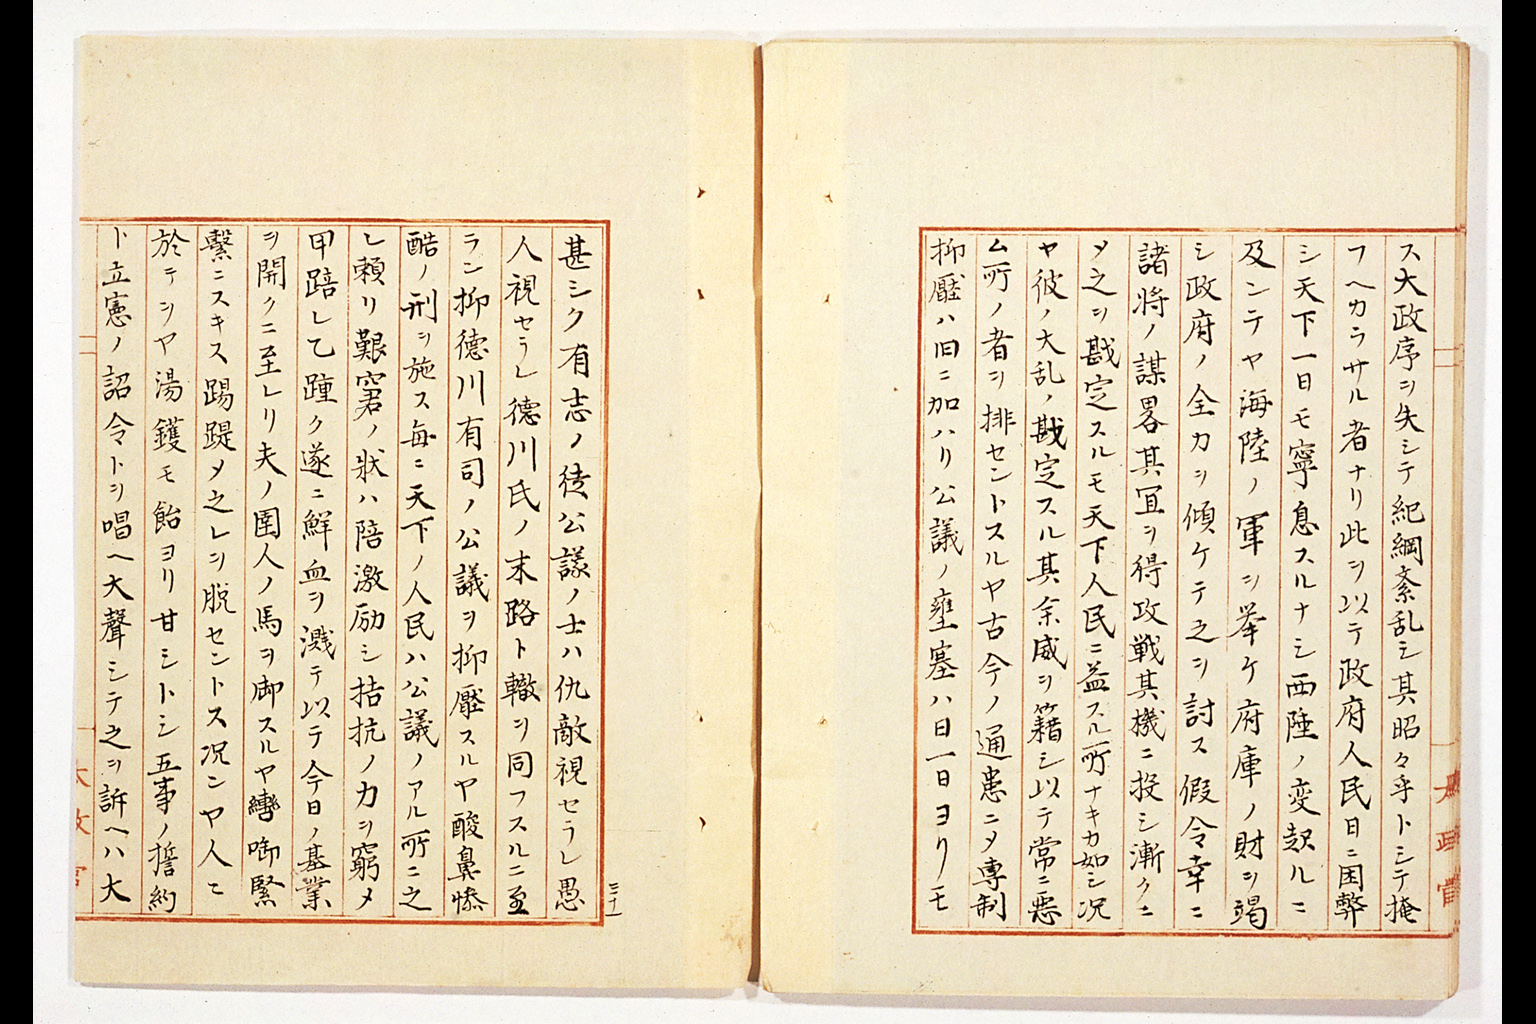 ス大政序ヲ失シテ紀綱紊乱シ其昭々乎トシテ掩
フヘカラサル者ナリ此ヲ以テ政府人民日ニ困弊
シ天下一日モ寧息スルナシ西陲ノ変起ルニ
及ンテヤ海陸ノ軍ヲ挙ケ府庫ノ財ヲ竭
シ政府ノ全力ヲ傾ケテ之ヲ討ス假令幸ニ
諸将ノ謀畧其冝ヲ得攻戦其機ニ投シ漸クニ
メ之ヲ戡定スルモ天下人民ニ益スル所ナキカ如シ况
ヤ彼ノ大乱ノ戡定スル其余威ヲ籍シ以テ常ニ悪
ム所ノ者ヲ排セントスルヤ古今ノ通患ニメ専制
抑壓ハ旧ニ加ハリ公議ノ壅塞ハ日一日ヨリモ
甚シク有志ノ徒公議ノ士ハ仇敵視セラレ愚
人視セラレ德川氏ノ末路ト轍ヲ同フスルニ至
ラン抑德川有司ノ公議ヲ抑壓スルヤ酸鼻惨
酷ノ刑ヲ施ス毎ニ天下ノ人民ハ公議ノアル所ニ之
レ頼リ艱窘ノ狀ハ陪激励シ拮抗ノ力ヲ窮メ
甲踣レ乙踵ク遂ニ鮮血ヲ濺テ以テ今日ノ基業
ヲ開クニ至レリ夫ノ圉人ノ馬ヲ御スルヤ轡啣緊
繫ニスキス踢踶メ之レヲ脱セントス况ンヤ人ニ
於テヲヤ湯鑊モ飴ヨリ甘シトシ五事ノ誓約
ト立憲ノ詔令トヲ唱ヘ大聲シテ之ヲ訴ヘハ大
太政官
太政官
三十一